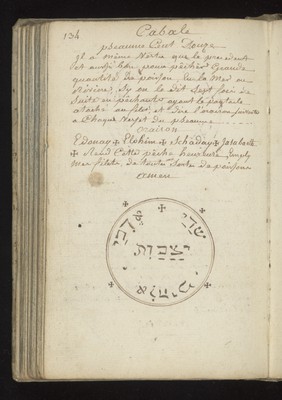 134
Cabale
pseaume Cent Douze
Il a même Vertu que le precedent
est aussi bon pour pêcher Grande
quantité de poison, sur la Mer ou
Rivière, Sy on le dit Sept fois de
Suite en pêchant ayant le pantacle
ataché au filet, et dire l'oraison suivante
a Chaque Verset du pseaume
oraison
Edonay ✠ Elohim ✠ Schaday ✠
✠ Rend Cette pêche heureuse
mes filets, de toutte Sorte de poissons
amen
אדני ✠ שדי
יצבות
✠ אלהים ✠